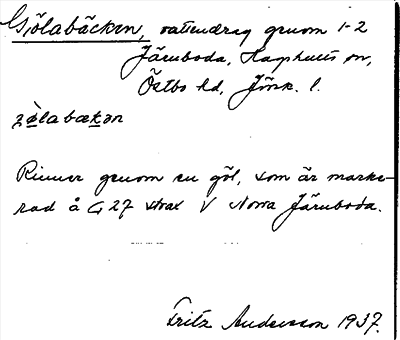 Gölabäcken, vattendrag genom 1-2
Järnboda, Hagshults sn,
Östbo hd, Jönk. l.
Rinner genom en göl, som är marke-
rad å G 27 strax V Norra Järnboda.
Fritz Andersson 1937.